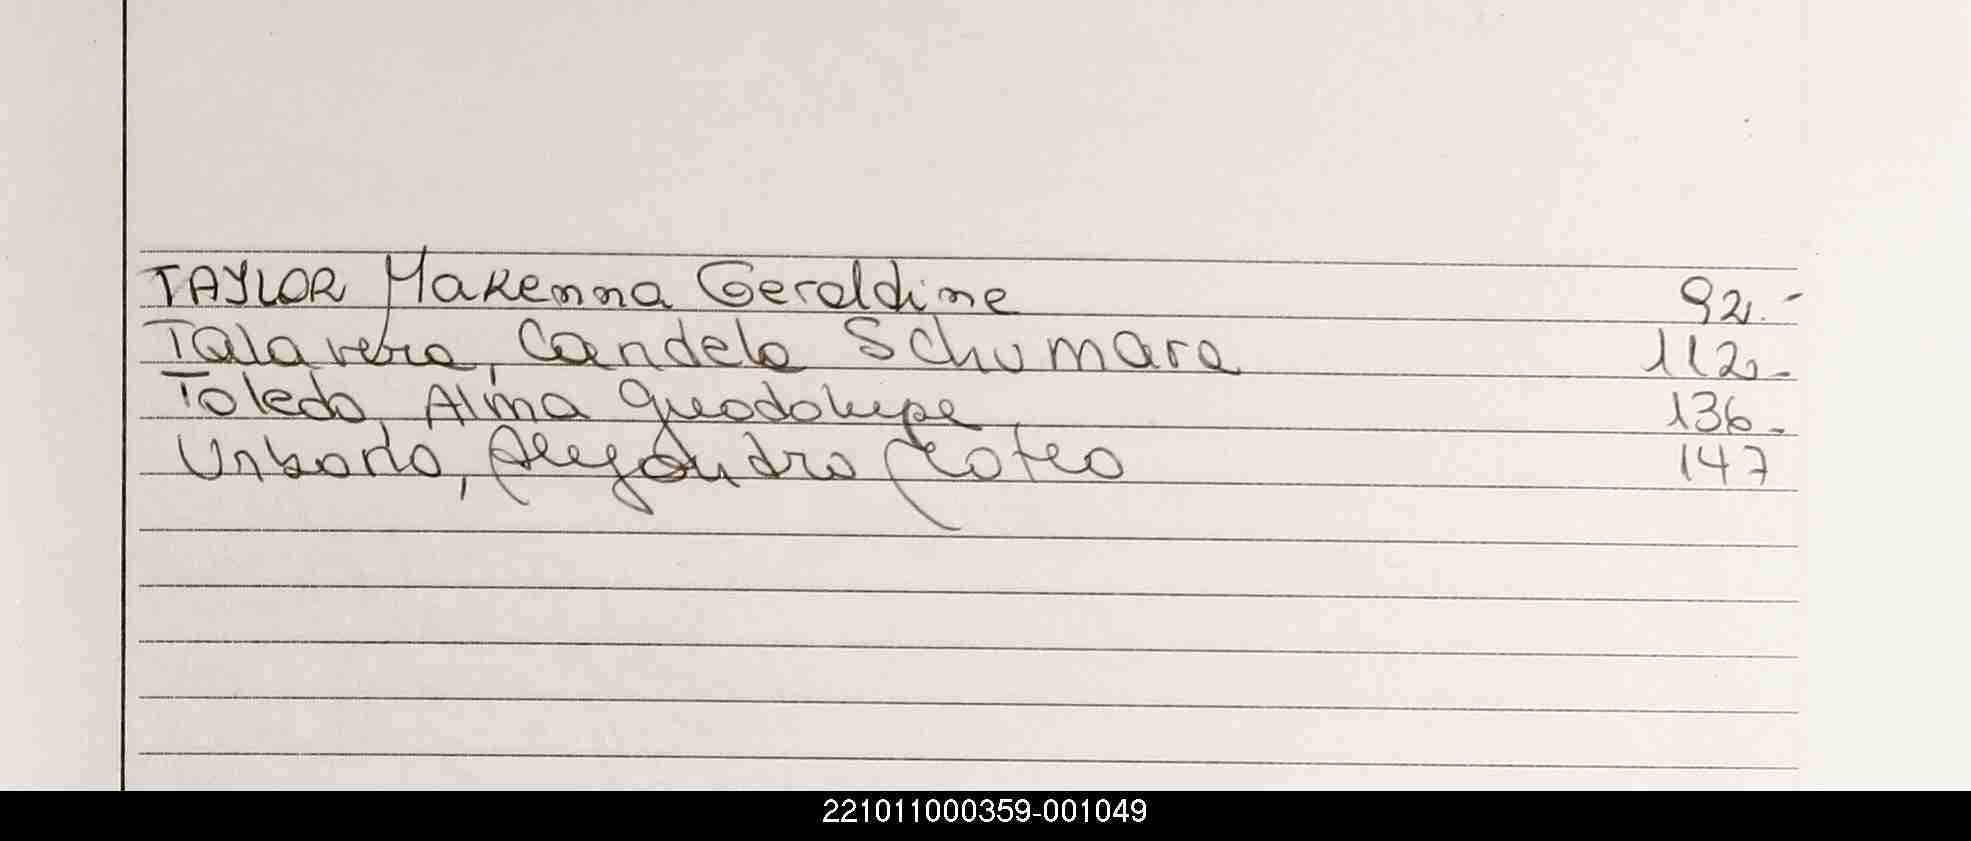 TAYLOR Makenna Geraldine 92.-
Talavera, Candela Schumara 112.-
Toledo, Alma Guadalupe 136.-
Alejandro 147
221011000359-001049